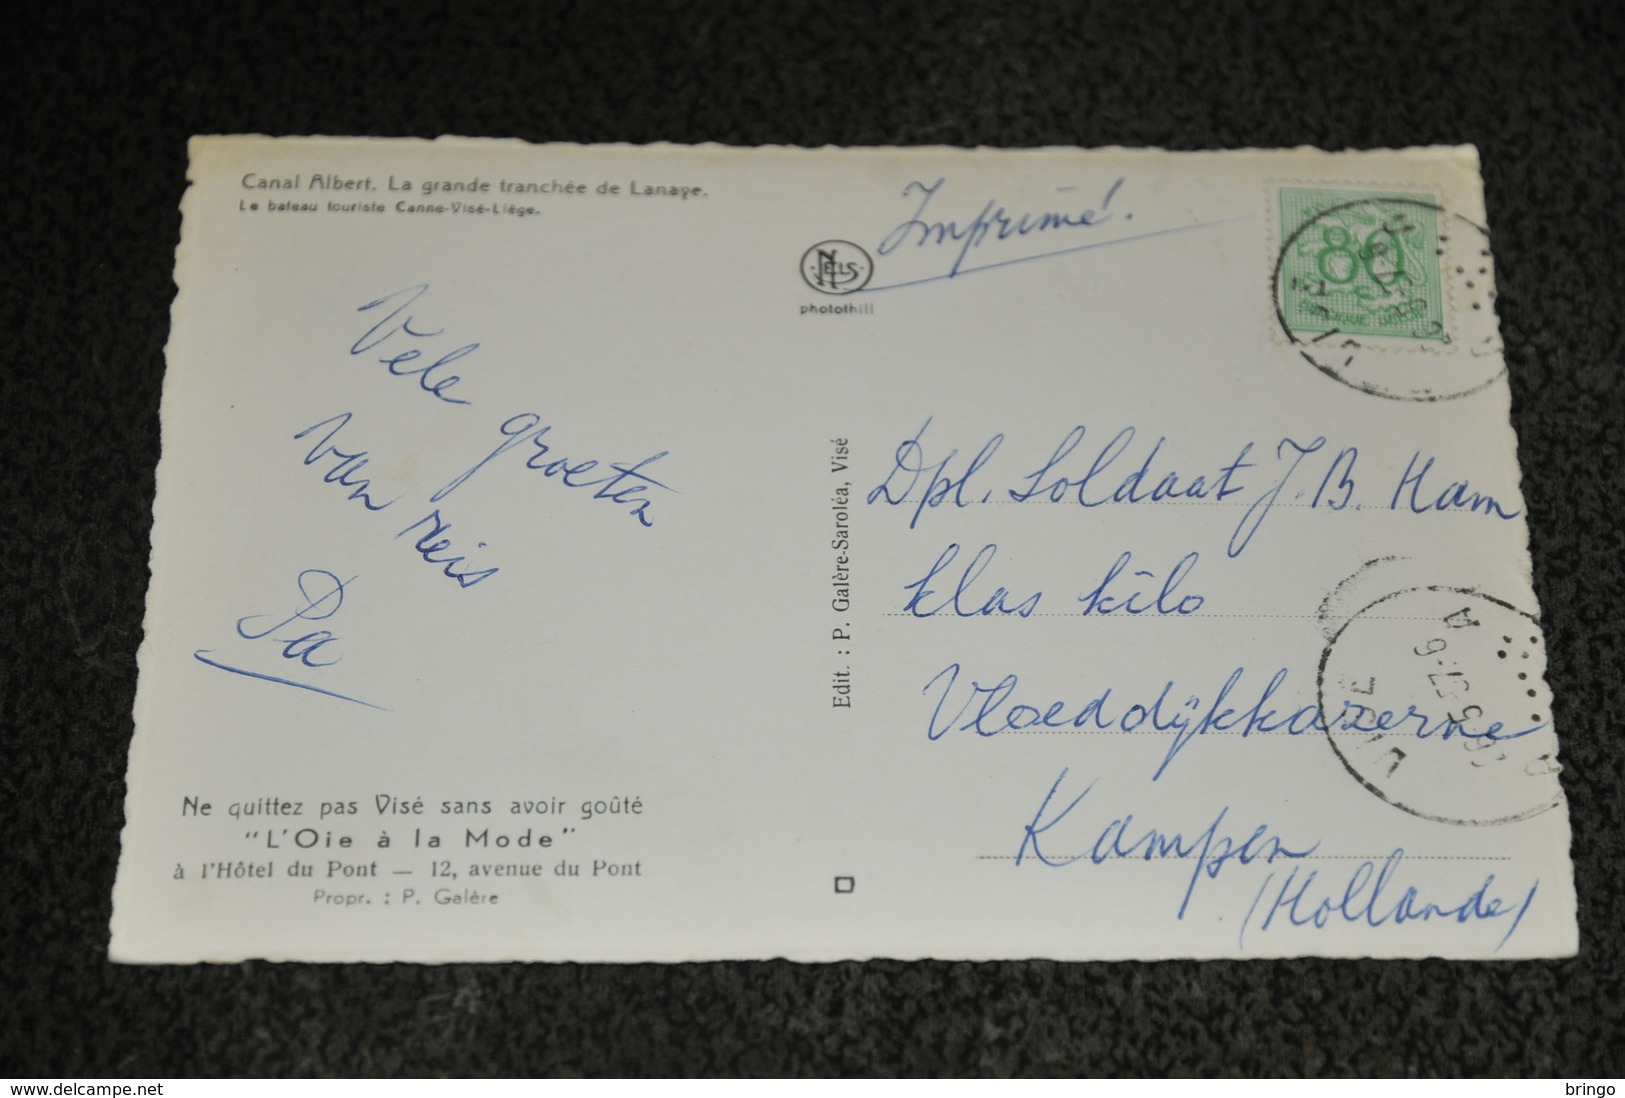 Canal Albert. La grande tranchée de Lanaye.
Le bateau touriste Canne-Visé-Liège.
Imprimé.
NELS
photothill
80
BELGIQUE BELGIE
VISE
Vele groeten
van reis
Pa
Edit. : P. Galère-Saroléa, Visé
Dpl. Soldaat J.B. Ham
klas kilo
Vloeddijkkazerne
Kampen
(Hollande)
VISE
Ne quittez pas Visé sans avoir goûté
"L'Oie à la Mode"
à l'Hôtel du Pont — 12, avenue du Pont
Propr. : P. Galère
www.delcampe.net
bringo